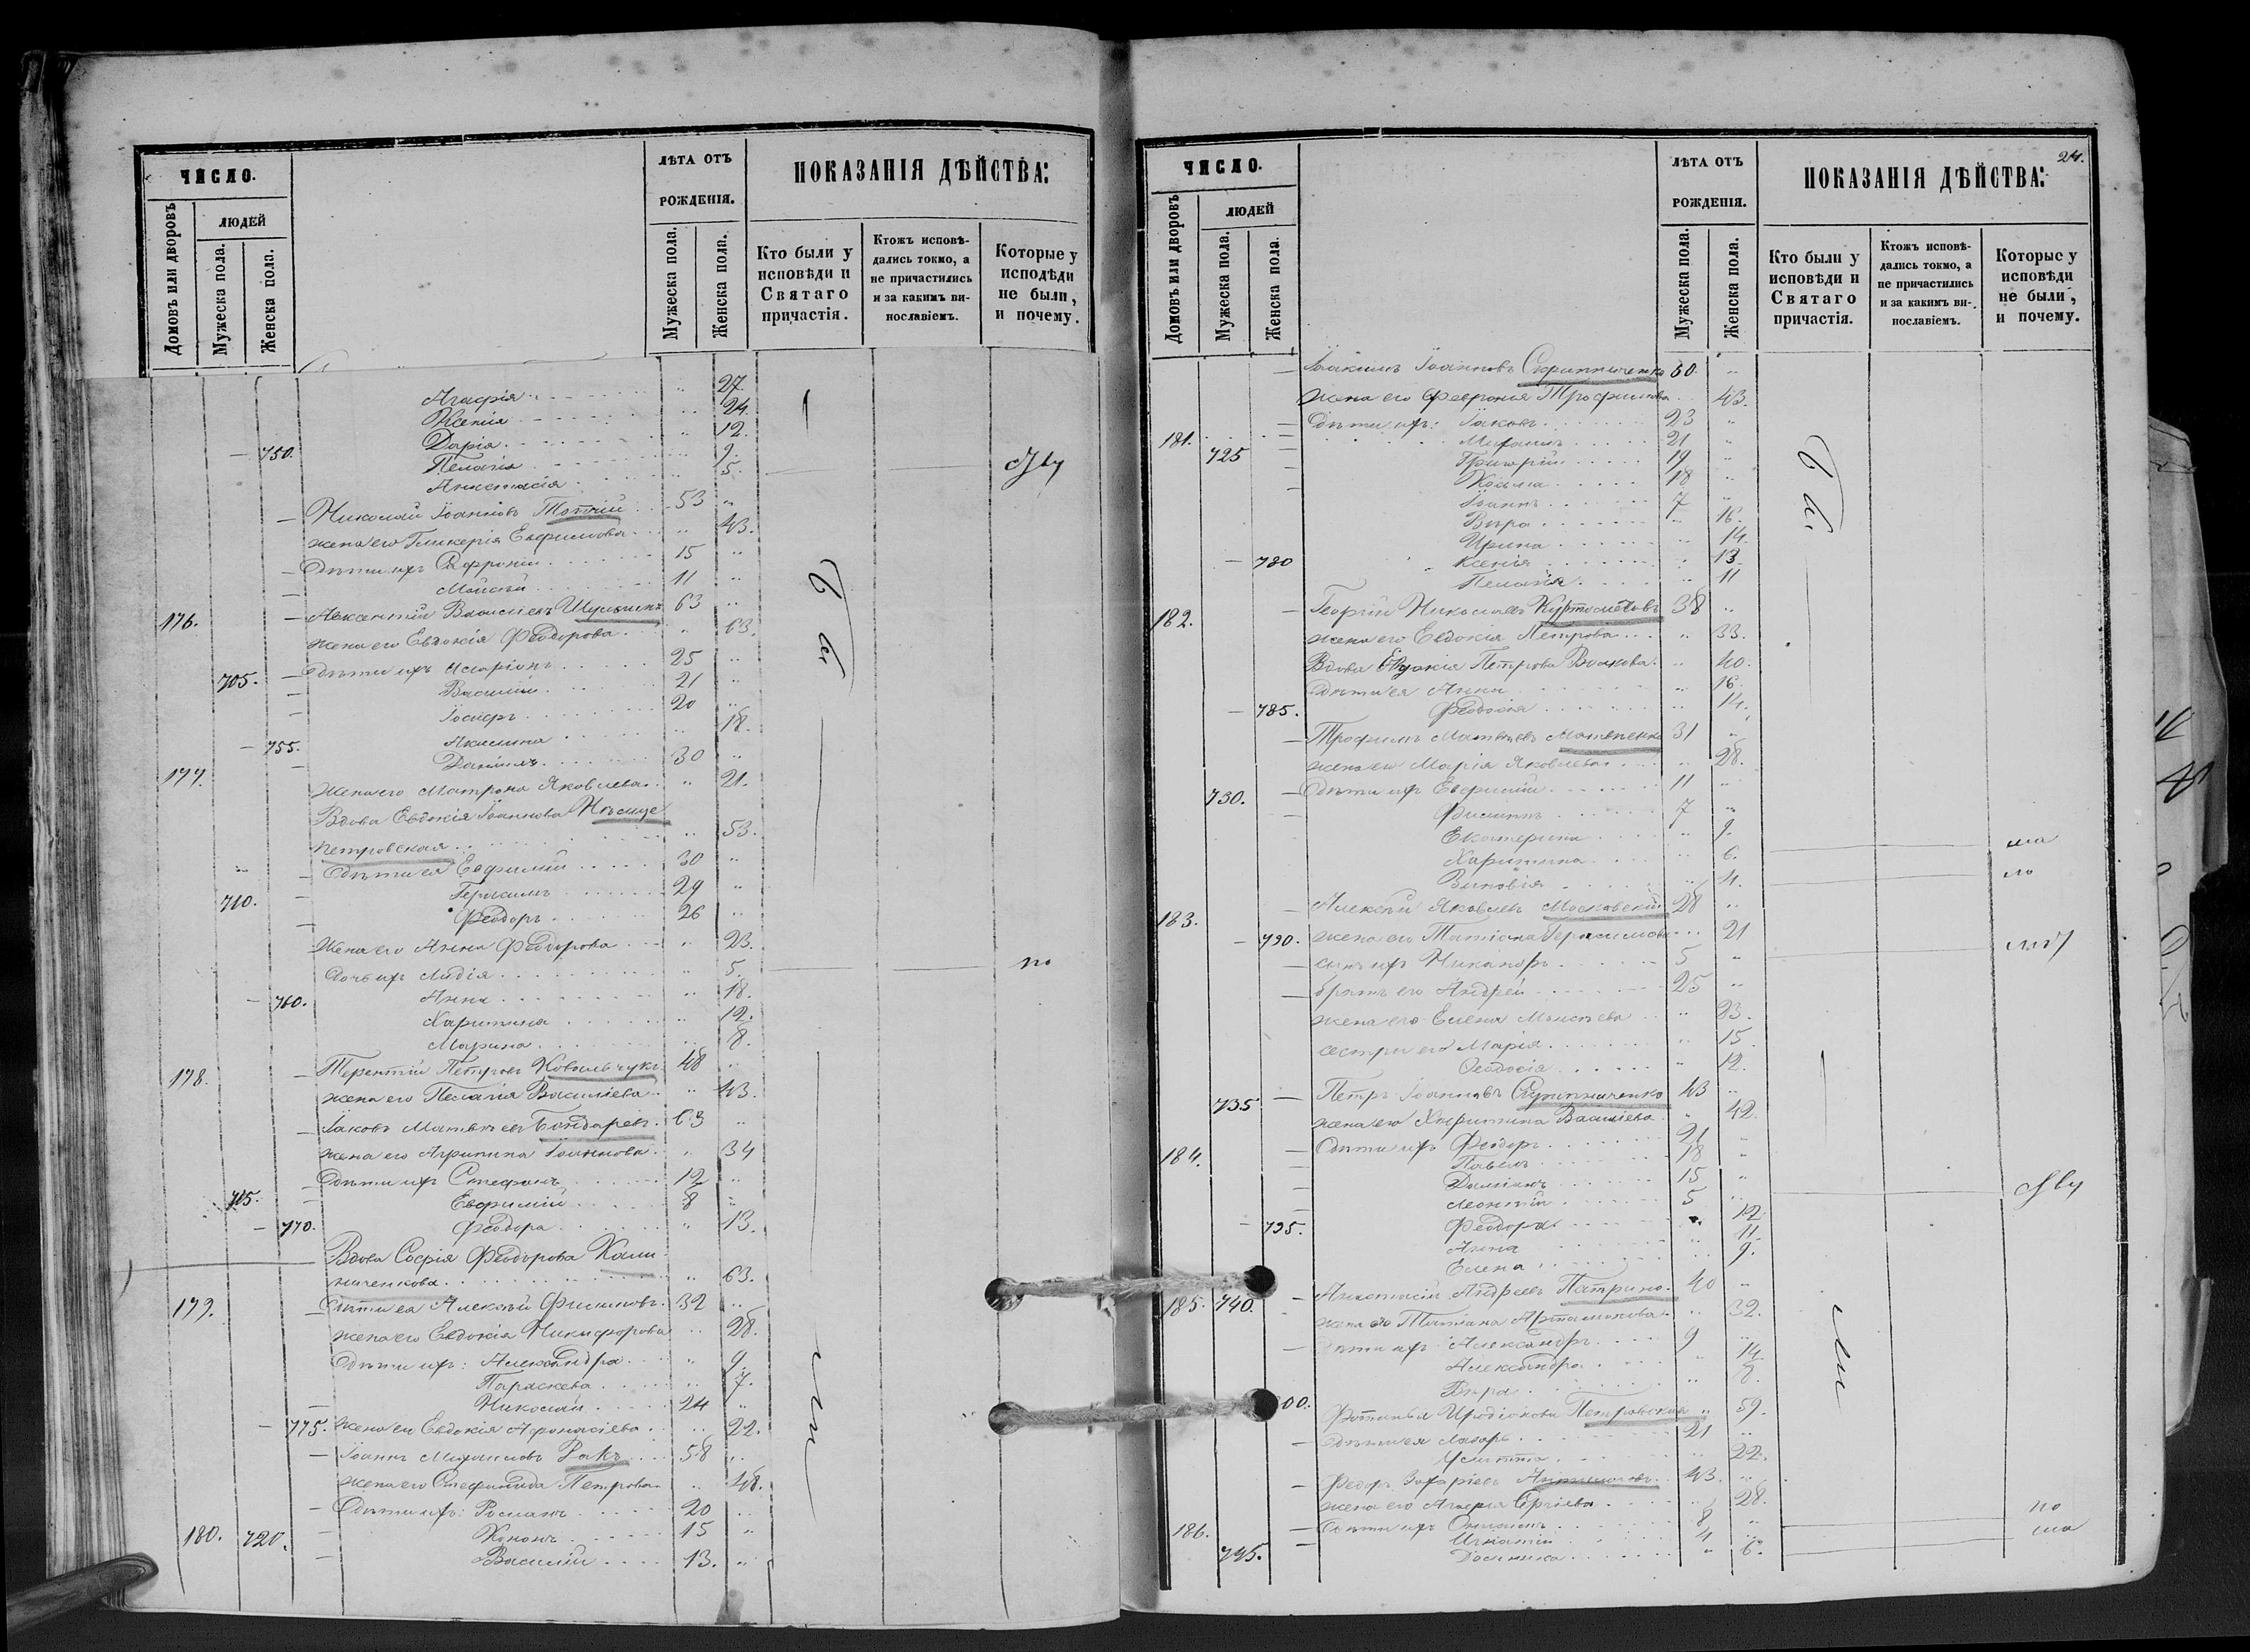 ЧИСЛО.
ЛѢТА ОТЪ
РОЖДЕНІЯ.
ПОКАЗАНІЯ ДѢЙСТВА:
Домовъ или дворовъ
ЛЮДЕЙ
Мужеска пола.
Женска пола.
Мужеска пола.
Женска пола.
Кто были у исповѣди и Святаго причастія.
Ктожъ исповѣдались токмо, а не причастились и за какимъ винославіемъ.
Которые у исподѣди не были, и почему.
Агафія 27.
Ксенія 24.
Дарія 12.
750. Пелагія 9.
Анастасія 5.
Николай Іоанновъ 53
жена его Гликерія Евфимова 43.
Дѣти ихъ Софроній 15
Моисей 11
176. Авксентій Василіевъ 63
жена его Евдокія Ѳеодорова 63.
Дѣти ихъ Иларіонъ 25
705. Василій 21
Іосифъ 20
755. Акилина 18.
177. Даніилъ 30
жена его Матрона Яковлева 21.
Вдова Евдокія Іоаннова
петровская 53.
Дѣти ея Евфимій 30
710. Герасимъ 29
Ѳеодоръ 26
Жена его Анна Ѳеодорова 23.
Дочь ихъ Лидія 5.
760. Анна 18.
Харитина 12.
Марина 8.
178. Терентій Петровъ Ковальчукъ 48
жена его Пелагія Василіева 43.
Іаковъ Матвѣевъ Бондаревъ 63
жена его Агрипина Іоаннова 34
Дѣти ихъ Стефанъ 12
715. Евфимій 8
770. Ѳеодора 13.
Вдова Софія Ѳеодорова Кали-
ниченкова 63.
179. Дѣти ея Алексѣй Филиповъ 32
жена его Евдокія Никифорова 28.
Дѣти ихъ: Александра 9.
Параскева 7.
Николай 24
775. жена его Евдокія Афанасіева 22.
Іоаннъ Михаиловъ Ракъ 58
жена его Стефанида Петрова 48.
Дѣти ихъ: Романъ 20
180. 720. Кононъ 15
Василій 13.
24.
ЧИСЛО.
ЛѢТА ОТЪ
РОЖДЕНІЯ.
ПОКАЗАНІЯ ДѢЙСТВА:
Домовъ или дворовъ
ЛЮДЕЙ
Мужеска пола.
Женска пола.
Мужеска пола.
Женска пола.
Кто были у исповѣди и Святаго причастія.
Ктожъ исповѣдались токмо, а не причастились и за какимъ винославіемъ.
Которые у исповѣди не были, и почему.
Іоакимъ Іоанновъ Скрипниченко 50.
жена его Феврония Трофимова 43.
Дѣти ихъ: Іаковъ 23
181. Михаилъ 21
725 Григорій 19
Козьма 18
Іоаннъ 7
Вѣра 16.
Ирина 14.
780 Ксенія 13.
Пелагія 11
182. Георгій Николаевъ 38
жена его Евдокія Петрова 33.
Вдова Петрова Волкова 40.
Дѣти ея Анна 16.
785. Ѳеодосія 14.
Трофимъ Матвѣевъ Матвѣенко 31
жена его Марія Яковлева 28.
730. Дѣти ихъ Евфимій 11
Филиппъ 7
Екатерина 9.
Харитина 6.
Зиновія 4.
183. Алексѣй Яковлевъ Московскій 28
790. жена его Татіана Герасимова 21
сынъ ихъ Никаноръ 5
братъ его Андрей 25
жена его Елена Моисѣева 23.
сестры его Марія 15.
Ѳеодосія 12.
735 Петръ Іоанновъ Скрипниченко 43
жена его Харитина Василіева 42.
184. Дѣти ихъ Ѳеодоръ 21
Павелъ 18
Даміанъ 15
Леонтій 5
795. Ѳеодора 12
Анна 11.
Елена 9.
185. 740. Анастасій Андреевъ Патрино 40
жена его Татіана Артамонова 32.
Дѣти ихъ Александръ 9
Александра 14.
Вѣра 8.
00. Иродіонова Петровская 59.
Дѣти ея Лазарь 21
22.
Ѳедоръ Захаріевъ 43.
жена его Сергіева 28.
186. Дѣти ихъ 8
795. Игнатій 4
Домникія 6.